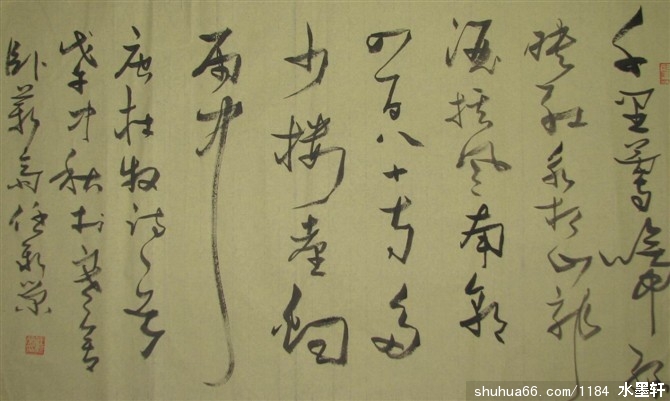 千里莺啼绿
映红水村山郭
酒旗风南朝
四百八十寺多
少楼台烟
雨中
唐杜牧诗一首
戊子中秋於寒舍
卧薪斋任
shuhua66.com/1184 水墨轩